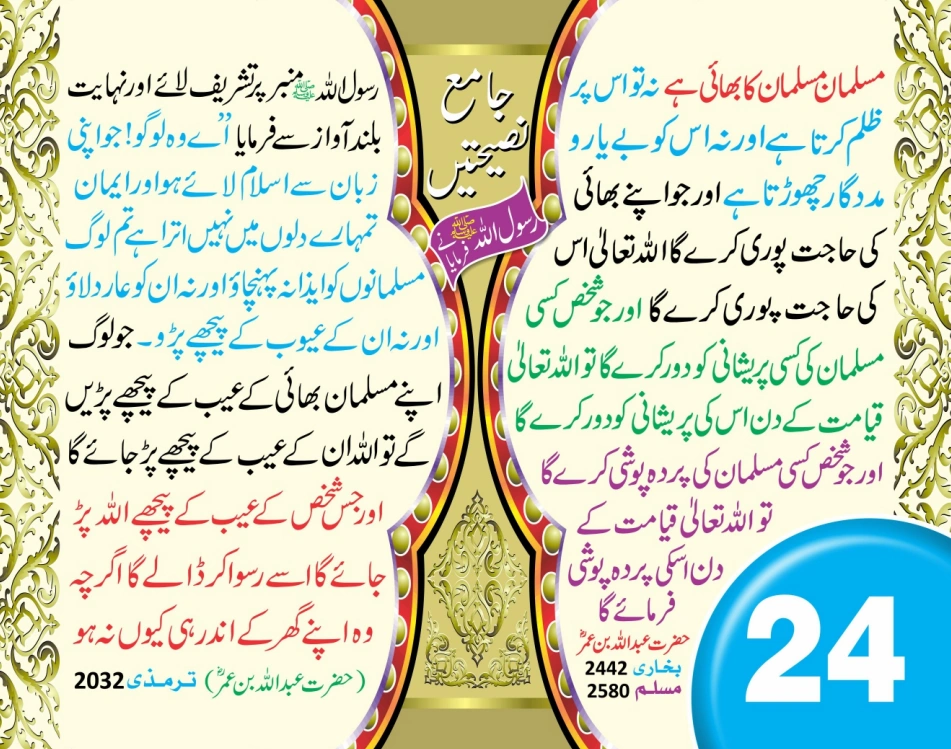 جامع
نصیحتیں
رسول اللہ ﷺ نے فرمایا
مسلمان مسلمان کا بھائی ہے نہ تو اس پر
ظلم کرتا ہے اور نہ اس کو بے یار و
مددگار چھوڑتا ہے اور جو اپنے بھائی
کی حاجت پوری کرے گا اللہ تعالیٰ اس
کی حاجت پوری کرے گا اور جو شخص کسی
مسلمان کی کسی پریشانی کو دور کرے گا تو اللہ تعالیٰ
قیامت کے دن اس کی پریشانی کو دور کرے گا
اور جو شخص کسی مسلمان کی پردہ پوشی کرے گا
تو اللہ تعالیٰ قیامت کے
دن اسکی پردہ پوشی
فرمائے گا
حضرت عبداللہ بن عمرؓ
بخاری 2442
مسلم 2580
رسول اللہ ﷺ منبر پر تشریف لائے اور نہایت
بلند آواز سے فرمایا ”اے وہ لوگو! جو اپنی
زبان سے اسلام لائے ہو اور ایمان
تمہارے دلوں میں نہیں اترا ہے تم لوگ
مسلمانوں کو ایذا نہ پہنچاؤ اور نہ ان کو عار دلاؤ
اور نہ ان کے عیوب کے پیچھے پڑو۔ جو لوگ
اپنے مسلمان بھائی کے عیب کے پیچھے پڑیں
گے تو اللہ ان کے عیب کے پیچھے پڑ جائے گا
اور جس شخص کے عیب کے پیچھے اللہ پڑ
جائے گا اسے رسوا کر ڈالے گا اگرچہ
وہ اپنے گھر کے اندر ہی کیوں نہ ہو
(حضرت عبداللہ بن عمرؓ) ترمذی 2032
24